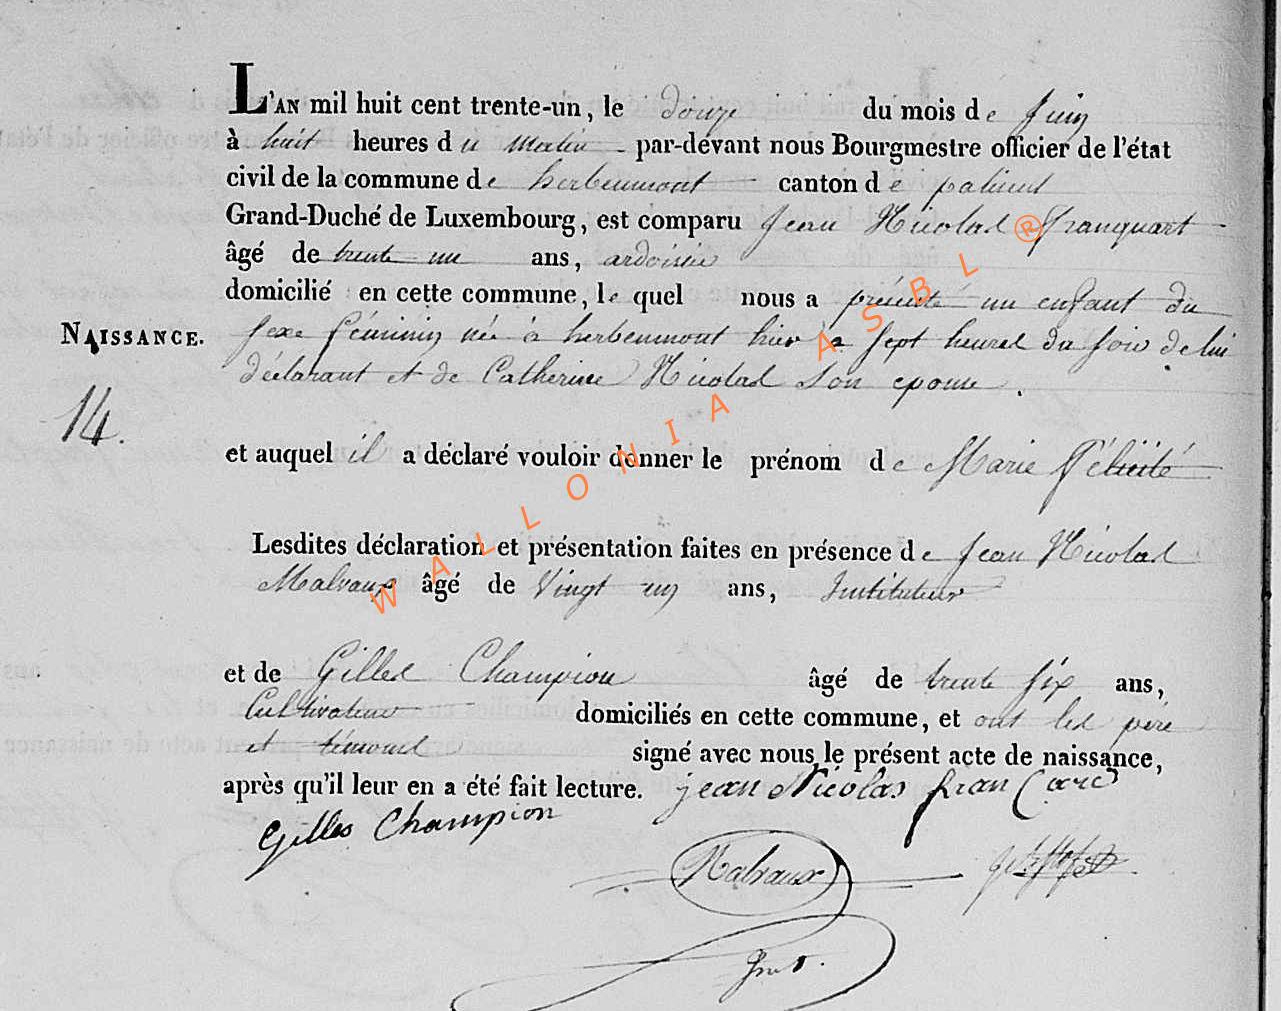 L'AN mil huit cent trente-un, le douze du mois de Juin
à huit heures du Matin par-devant nous Bourgmestre officier de l'état
civil de la commune de herbeumont canton de paliseul
Grand-Duché de Luxembourg, est comparu Jean Nicolas Franquart
âgé de trente un ans, ardoisier
domicilié en cette commune, le quel nous a présenté un enfant du
NAISSANCE.
sexe féminin née à herbeumont hier à sept heures du soir de lui
déclarant et de Catherine Nicolas son epouse.
14.
et auquel il a déclaré vouloir donner le prénom de Marie Félicité
Lesdites déclaration et présentation faites en présence de Jean Nicolas
Malvaux âgé de Vingt un ans, Instituteur
et de Gilles Champion âgé de trente six ans,
Cultivateur domiciliés en cette commune, et ont les père
et témoins signé avec nous le présent acte de naissance,
après qu'il leur en a été fait lecture. jean Nicolas fran Carc
Gilles Champion
Malvaux
WALLONIA ASBL ®